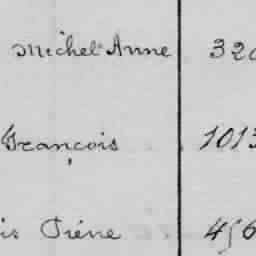 Michel Anne 320
François 1013
is Piére 456